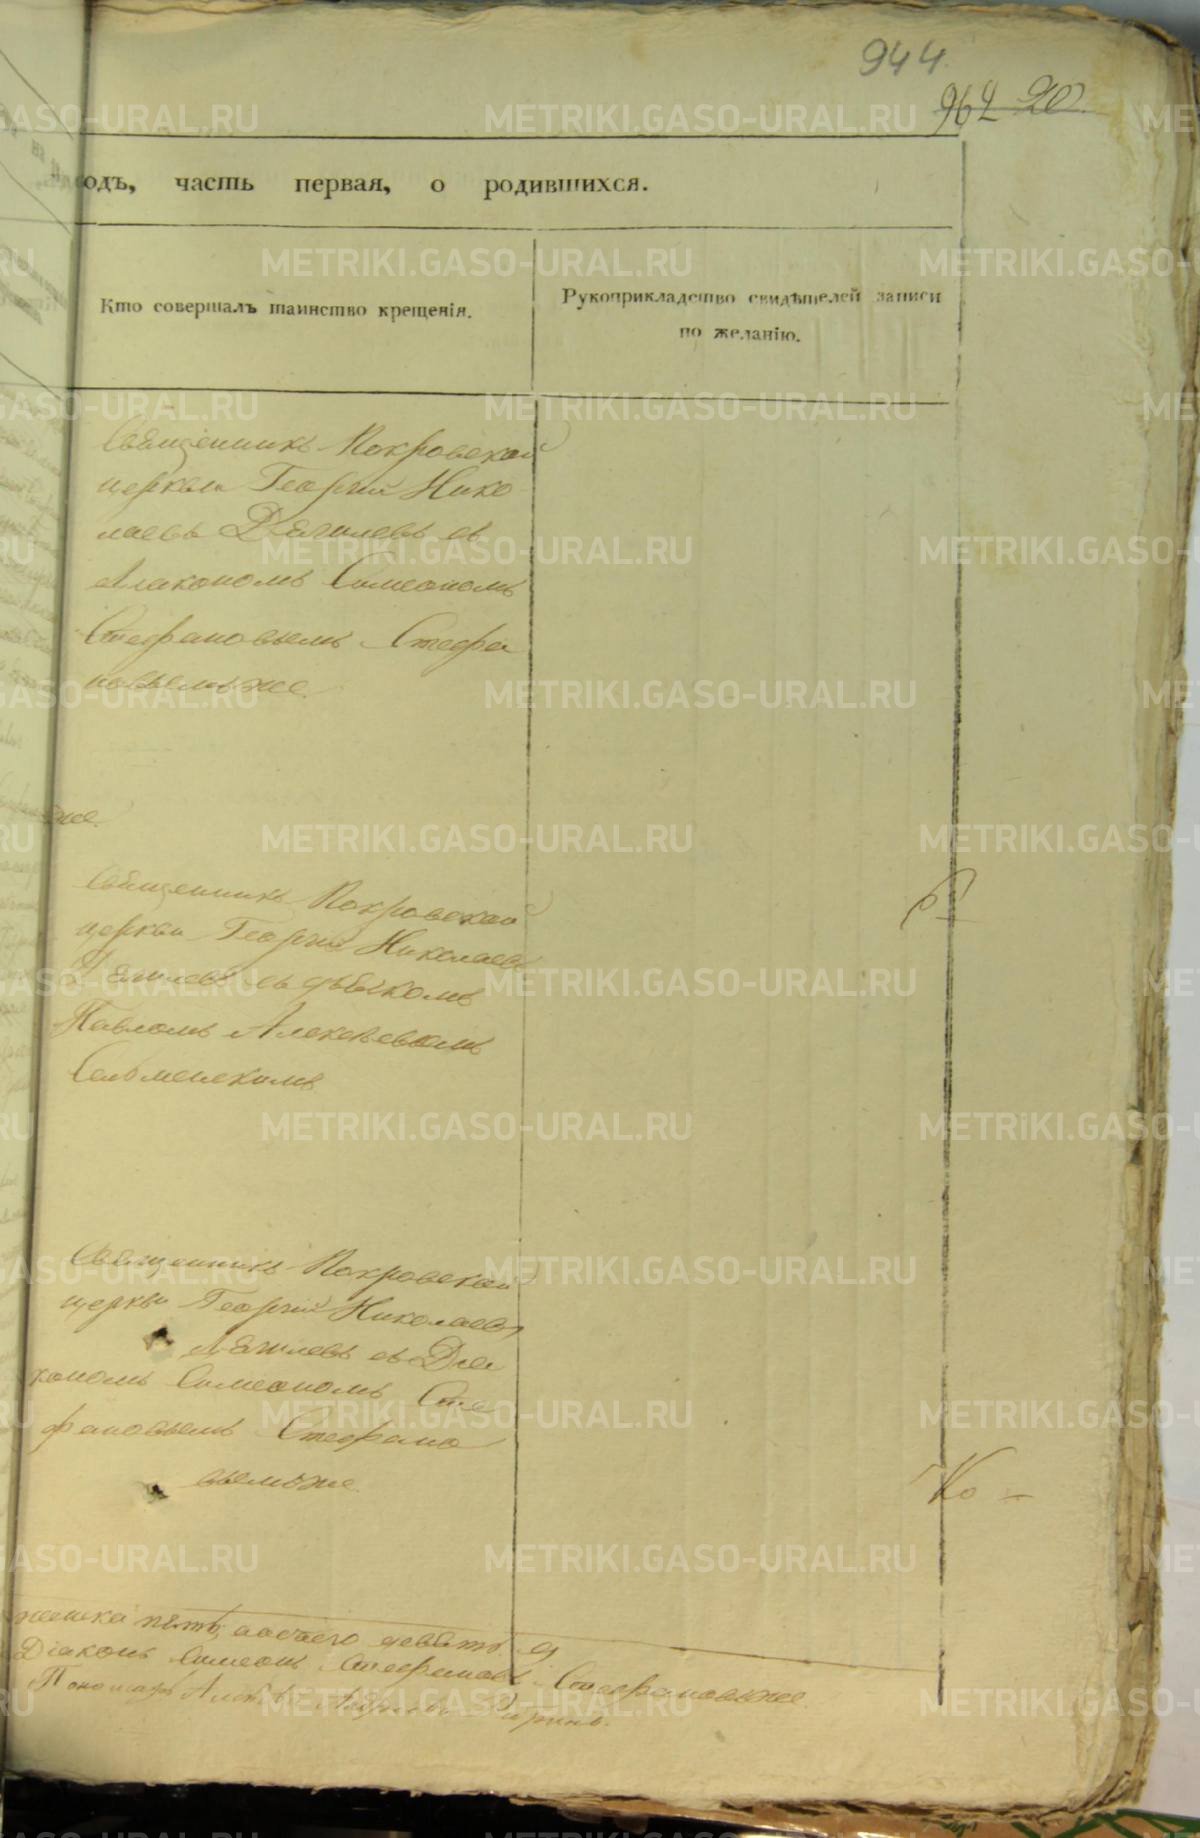 944.
962 20
одъ, часть первая, о родившихся.
Кто совершалъ таинство крещенія.
Рукоприкладство свидѣтелей записи
по желанію.
Священникъ Покровской
церкви Георгій Нико
лаевъ Дягилевъ съ
Діакономъ Симеономъ
Стефановымъ Стефа
новымъ же.
же.
Священникъ Покровской
церкви Георгій Николаевъ
Дягилевъ съ дьячкомъ
Павломъ Алексѣевымъ
Сельменскимъ
Священникъ Покровской
церкви Георгій Николаевъ
Дягилевъ съ Діа
кономъ Симеономъ Сте
фановымъ Стефано
вымъ же.
Ко
женска пять, а всего девять 9
Діаконъ Симеонъ Стефановъ Стефановъ же
Пономарь
METRIKI.GASO-URAL.RU